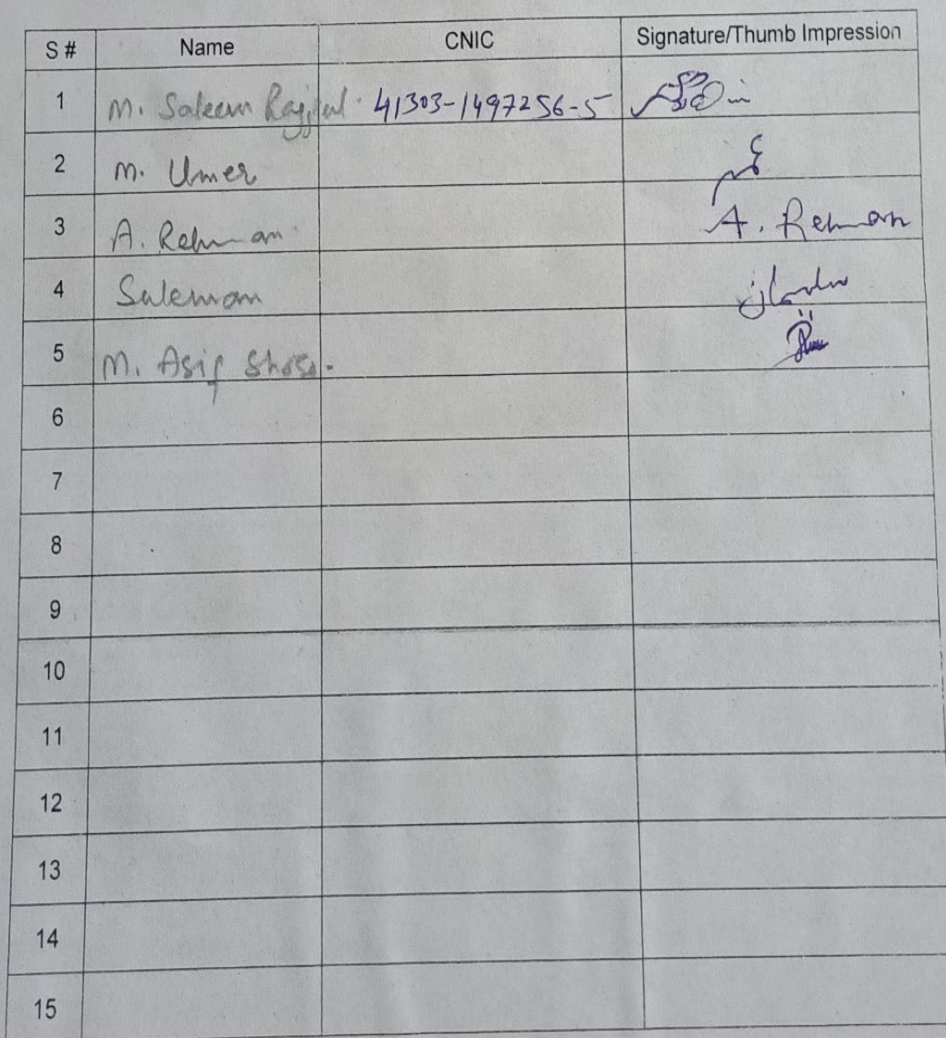 S # Name CNIC Signature/Thumb Impression
1 M. Saleem 41303-1497256-5
2 M. Umer عمر
3 A. Rehman A. Rehman
4 Suleman سلیمان
5 M. Asif
6
7
8
9
10
11
12
13
14
15